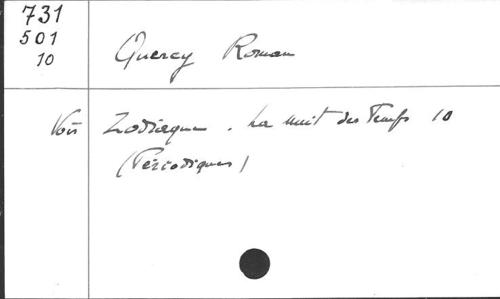 731
501
10
Quercy Roman
Voir Zodiaque. La nuit des Temps 10
(Périodiques)